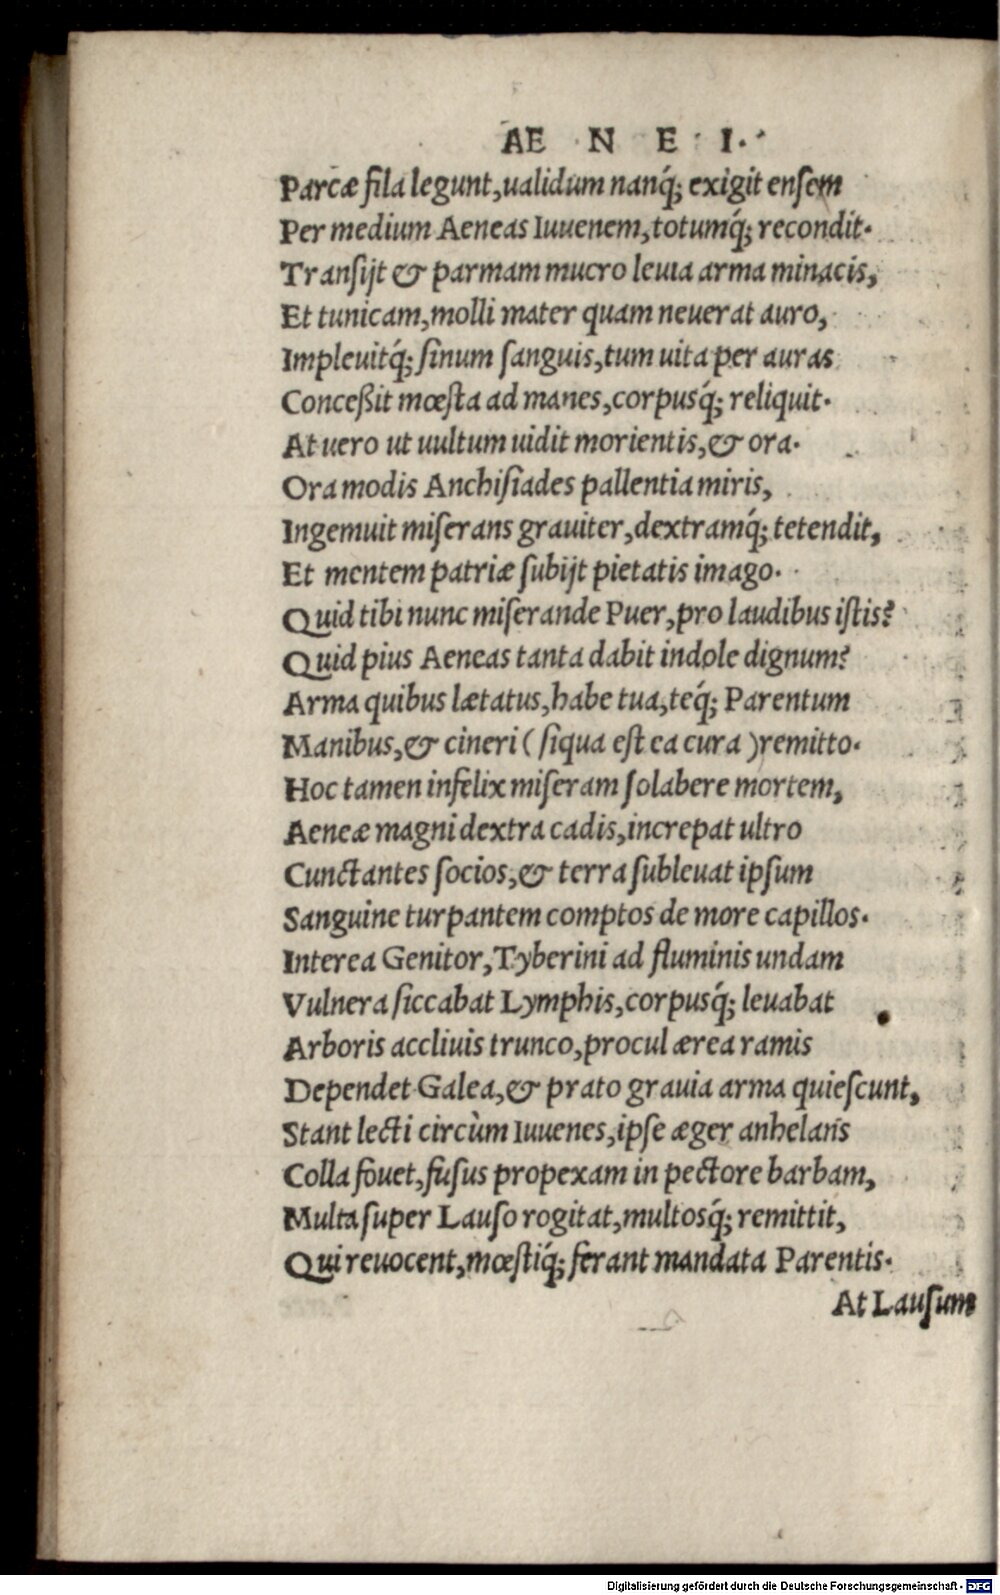 AE N E I.
Parcæ fila legunt,ualidum nanq́; exigit ensem
Per medium Aeneas Iuuenem,totumq́; recondit.
Transijt & parmam mucro leuia arma minacis,
Et tunicam,molli mater quam neuerat auro,
Impleuitq́; sinum sanguis,tum uita per auras
Conceßit mœsta ad manes,corpusq́; reliquit.
At uero ut uultum uidit morientis,& ora.
Ora modis Anchisiades pallentia miris,
Ingemuit miserans grauiter,dextramq́; tetendit,
Et mentem patriæ subijt pietatis imago.
Quid tibi nunc miserande Puer,pro laudibus istis?
Quid pius Aeneas tanta dabit indole dignum?
Arma quibus lætatus,habe tua,teq́; Parentum
Manibus,& cineri ( siqua est ea cura )remitto.
Hoc tamen infelix miseram solabere mortem,
Aeneæ magni dextra cadis,increpat ultro
Cunctantes socios,& terra subleuat ipsum
Sanguine turpantem comptos de more capillos.
Interea Genitor,Tyberini ad fluminis undam
Vulnera siccabat Lymphis,corpusq́; leuabat
Arboris accliuis trunco,procul ærea ramis
Dependet Galea,& prato grauia arma quiescunt,
Stant lecti circùm Iuuenes,ipse æger anhelans
Colla fouet,fusus propexam in pectore barbam,
Multa super Lauso rogitat,multosq́; remittit,
Qui reuocent,mœstiq́; ferant mandata Parentis.
At Lausum
Digitalisierung gefördert durch die Deutsche Forschungsgemeinschaft - DFG